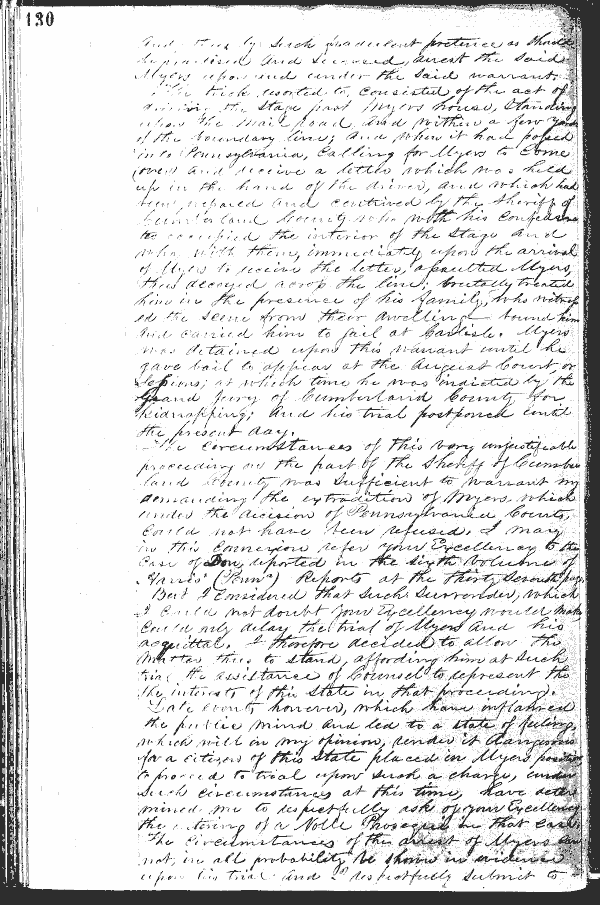 130
And thus by such fraudulent pretence as should
be practised and succeed, arrest the said
Myers upon and under the said warrant.
The trick resorted to, consisted of the act of
driving the stage past Myers house, standing
upon the mail road, and within a few yards
of the boundary line; and when it had passed
into Pennsylvania, calling for Myers to come
over and receive a letter which was held
up in the hand of the driver, and which had
been prepared and contrived by the Sheriff of
Cumberland County who with his
occupied the interior of the stage and
who with them, immediately upon the arrival
of Myers to receive the letter, assaulted Myers,
thus decoyed across the line; brutally treated
him in the presence of his family, who witness
ed the scene from their dwelling bound him
and carried him to jail at Carlisle. Myers
was detained upon this warrant until he
gave bail to appear at the August Court, or
Sessions; at which time he was indicted by the
Grand jury of Cumberland County for
Kidnapping; and his trial postponed until
the present day.
The circumstances of this very unjustifiable
proceeding on the part of the Sheriff of Cumber
land County was sufficient to warrant my
demanding the extradition of Myers, which
under the decision of Pennsylvania Courts,
could not have been refused. I may
in this connexion refer your Excellency to the
case of Dow, reported in the sixth Volume of
Harris' (Penna) Reports at the thirty seventh page.
But I considered that such surrender, which
I could not doubt your Excellency would make
could only delay the trial of Myers and his
acquittal. I therefore decided to allow the
matter thus to stand, affording him at such
trial the assistance of Counsel to represent the
the interests of this State in that proceeding.
Late events however, which have inflamed
the public mind and led to a state of feeling,
which will in my opinion, render it dangerous
for a citizen of this State placed in Myers position
to proceed to trial upon such a charge, under
such circumstances at this time, have deter
mined me to respectfully ask of your Excellency
the entering of a Nolle Prosequi in that case.
The circumstances of the arrest of Myers can
not, in all probability be shown in evidence
upon his trial and I respectfully submit to